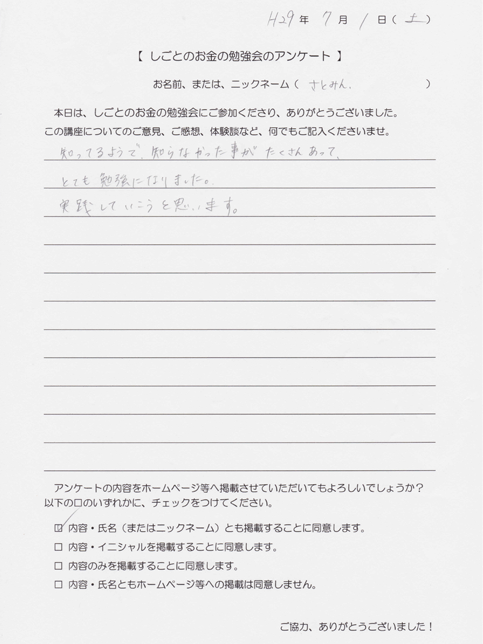 H29 年 7 月 1 日（ 土 ）
【 しごとのお金の勉強会のアンケート 】
お名前、または、ニックネーム（ さとみん. ）
本日は、しごとのお金の勉強会にご参加くださり、ありがとうございました。
この講座についてのご意見、ご感想、体験談など、何でもご記入くださいませ。
知ってるようで、知らなかった事がたくさんあって、
とても勉強になりました。
実践していこうと思います。
アンケートの内容をホームページ等へ掲載させていただいてもよろしいでしょうか？
以下の□のいずれかに、チェックをつけてください。
☑ 内容・氏名（またはニックネーム）とも掲載することに同意します。
□ 内容・イニシャルを掲載することに同意します。
□ 内容のみを掲載することに同意します。
□ 内容・氏名ともホームページ等への掲載は同意しません。
ご協力、ありがとうございました！